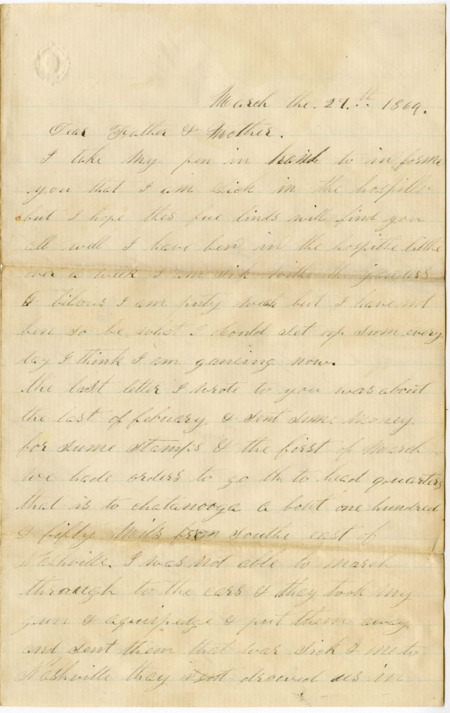 March the. 27th. 1864.
Dear Father & Mother.
I take my pen in hand to in forme
you that I am sick in the hospitle
but I hope thes fue linds will find you
all well I have ben in the hospitle little
over a week I am sick withe the
& bilous I am purty weak but I have not
ben so be wast I could set up sum every
day I think I am gaineing now.
the last letter I wrote to you was about
the last of febuary & sent sume money
for sume stamps & the first of march
we hade orders to go the to head quarters
that is to chatanooga a bout one hundred
& fifty mils from southe east of
Nashville. I was not able to march
through to the cars & they took my
gun & and put them away
and sent them that was sick & me to
Nashville they drawed us in